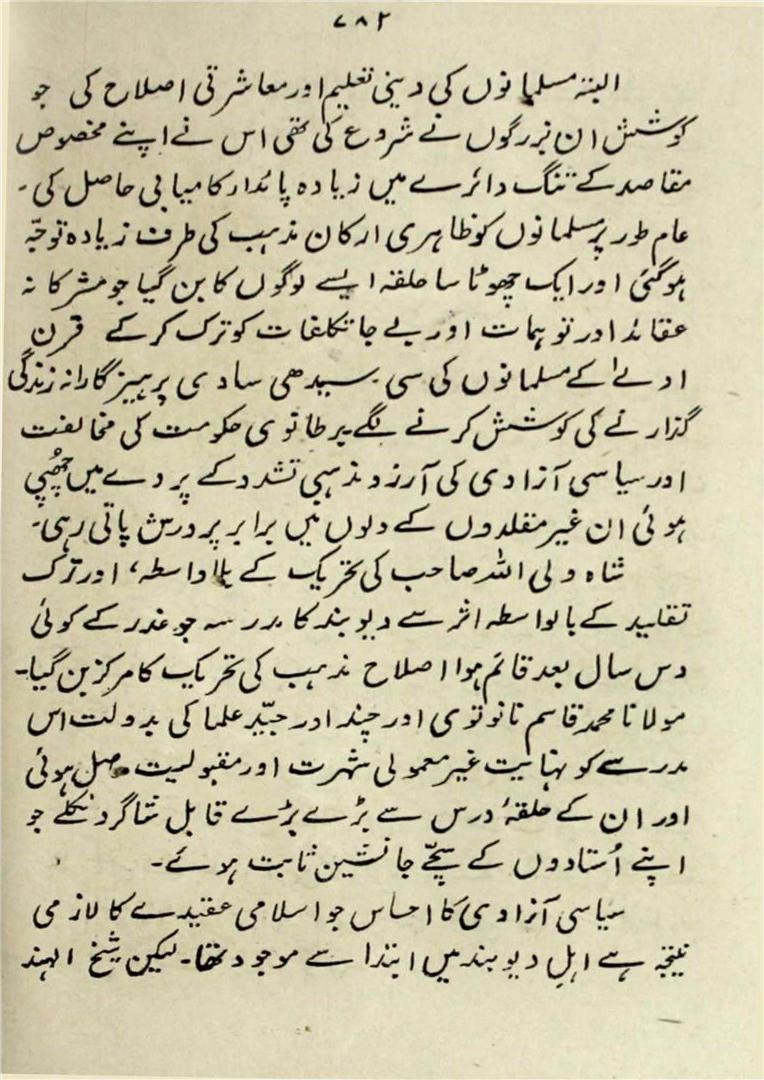 ۷۸۲
البتہ مسلمانوں کی دینی تعلیم اور معاشرتی اصلاح کی جو
کوشش ان بزرگوں نے شروع کی تھی اس نے اپنے مخصوص
مقاصد کے تنگ دائرے میں زیادہ پائدار کامیابی حاصل کی۔
عام طور پر مسلمانوں کو ظاہری ارکان مذہب کی طرف زیادہ توجّہ
ہوگئی اور ایک چھوٹا سا حلقہ ایسے لوگوں کا بن گیا جو مشرکانہ
عقائد اور توہمات اور بے جا تکلفات کو ترک کر کے قرن
اولےٰ کے مسلمانوں کی سی سیدھی سادی پرہیزگارانہ زندگی
گذارنے کی کوشش کرنے لگے برطانوی حکومت کی مخالفت
اور سیاسی آزادی کی آرزو مذہبی تشدد کے پردے میں چھُپی
ہوئی ان غیر مقلدوں کے دلوں میں برابر پرورش پاتی رہی۔
شاہ ولی اللہ صاحب کی تحریک کے بلاواسطہ، اور ترک
تقلید کے بالواسطہ اثر سے دیوبند کا مدرسہ جو غدر کے کوئی
دس سال بعد قائم ہوا اصلاح مذہب کی تحریک کا مرکز بن گیا۔
مولانا محمد قاسم نانوتوی اور چند اور جیّد علما کی بدولت اس
مدرسے کو نہایت غیر معمولی شہرت اور مقبولیت حاصل ہوئی
اور ان کے حلقۂ درس سے بڑے بڑے قابل شاگرد نکلے جو
اپنے اُستادوں کے سچّے جانشین ثابت ہوئے۔
سیاسی آزادی کا احساس جو اسلامی عقیدے کا لازمی
نتیجہ ہے اہلِ دیوبند میں ابتدا سے موجود تھا۔ لیکن شیخ الہند